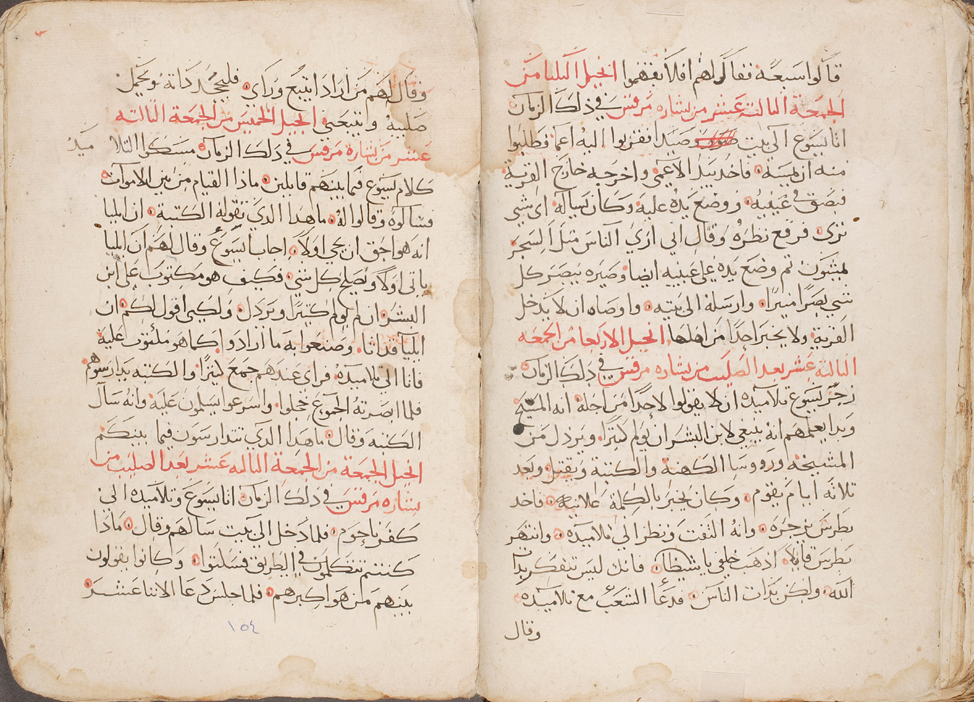 قالوا سبعة فقال لهم افلا تفهموا انجيل الثلثا من
الجمعة الثالثة عشر من بشارة مرقس في ذلك الزمان
اتا يسوع الى بيت صيدا فقربوا اليه اعما وطلبوا
منه ان يلمسه فاخد بيد الاعمى واخرجه خارج القرية
فبصق في عينيه ووضع يده عليه وكان يساله اي شي
ترى فرفع نظره وقال اني ارى الناس مثل الشجر
يمشون ثم وضع يده على عينيه ايضا وصيره يبصر كل
شي بصرا منيرا وارسله الى بيته واوصاه ان لا يدخل
القرية ولا يخبر احدا من اهلها انجيل الاربعا من الجمعه
الثالثة عشر بعد الصليب من بشاره مرقس في ذلك الزمان
زجر يسوع تلاميذه ان لا يقولوا لاحدا من اجله انه المسيح
وبدا يعلمهم انه ينبغي لابن البشر ان يولم كثيرا ويرذل من
المشيخه وروسا الكهنة والكتبة ويقتل وبعد
ثلاثة ايام يقوم وكان يخبر بالكلمة علانية فاخد
بطرس يزجره وانه التفت ونظر الى تلاميذه وانتهر
بطرس قايلا اذهب خلفي يا شيطان فانك ليس تتفكر بذات
الله ولكن بذات الناس فدعا الشعب مع تلاميذه
وقال
وقال لهم من اراد ان يتبع وراي فليجحد ذاته ويحمل
صليبه ويتبعني انجيل الخميس من الجمعة الثالثه
عشر من بشارة مرقس في ذلك الزمان مسكوا التلاميذ
كلام يسوع فيما بينهم قايلين ماذا القيام من بين الاموات
وسالوه وقالوا له ما هذا الذي تقوله الكتبة ان ايليا
انه هو احق ان يجي اولا اجاب يسوع وقال لهم ان ايليا
ياتى اولا ويصلح كل شي فكيف هو مكتوب على ابن
البشر ان يولم كثيرا ويرذل ولكني اقول لكم ان
ايليا قد اتا وصنعوا به ما ارادوا كما هو مكتوب عليه
فاتا الى تلاميذه فراى عندهم جمع كثيرا والكتبه يدارسوهم
فلما ابصرته الجموع خجلوا واسرعوا يسلمون عليه وانه سال
الكتبه وقال ما هذا الذي تتدارسون فيما بينكم
انجيل الجمعة من الجمعة الثالثه عشر بعد الصليب من
بشاره مرقس في ذلك الزمان اتا يسوع وتلاميذه الى
كفرناحوم فلما دخل الى بيت سالهم وقال ماذا
كنتم تتكلمون في الطريق فسكتوا وكانوا يقولون
بينهم من هو اكبرهم فلما جلس دعا الاثناعشر
١٥٤